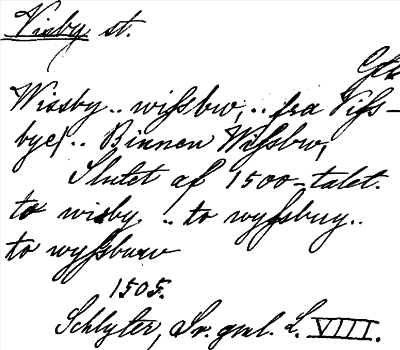 Visby st.
Gtl
Wissby .. wissbw, .. fra Viss-
bye/ .. Binnen Wissbw,
Slutet af 1500-talet.
to wisby .. to wyssbuy ..
to wyssbuw
1505.
Schlyter, Sv. gml. L. VIII.